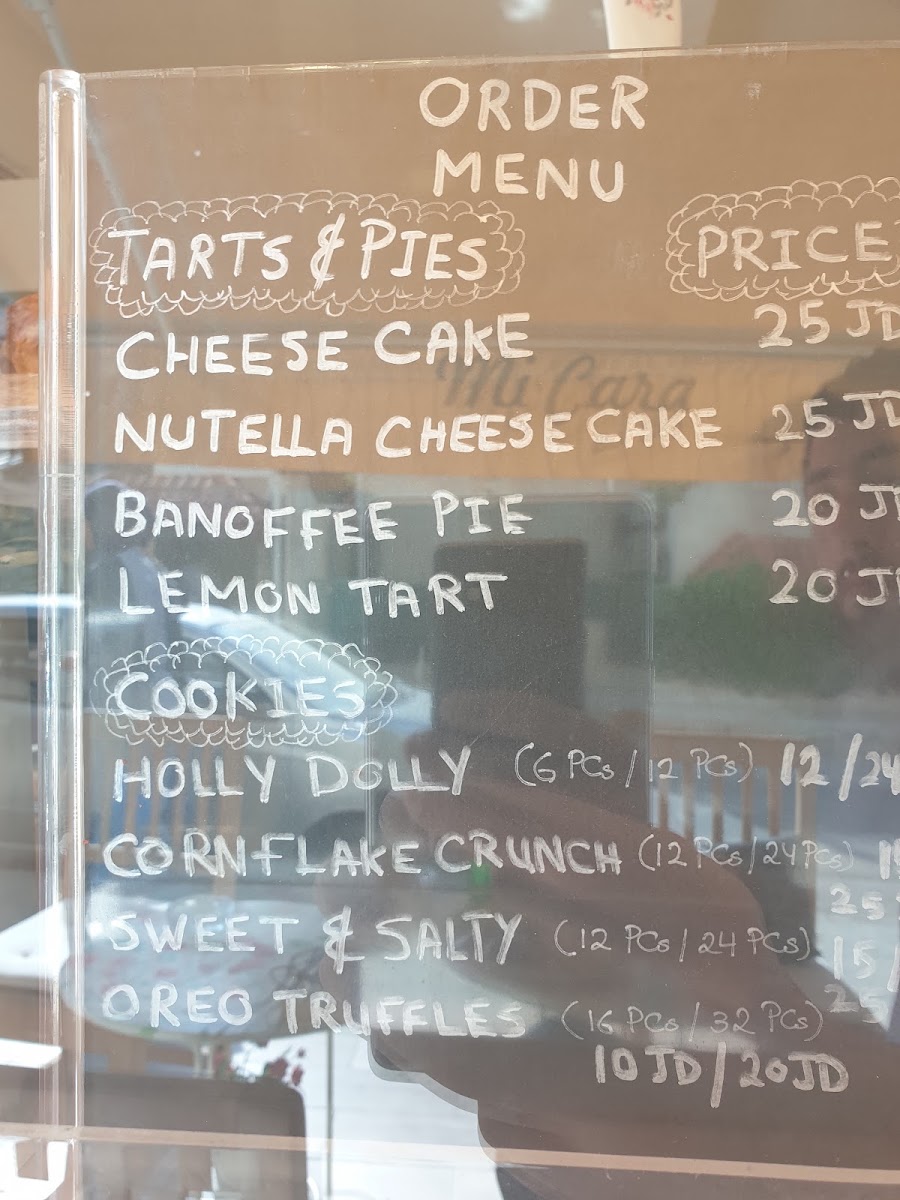 ORDER
MENU
TARTS & PIES PRICE
CHEESE CAKE 25 JD
NUTELLA CHEESE CAKE 25 JD
BANOFFEE PIE 20 JD
LEMON TART 20 JD
COOKIES
HOLLY DOLLY (6 PCs / 12 PCs) 12/24
CORNFLAKE CRUNCH (12 PCs / 24 PCs)
25
SWEET & SALTY (12 PCs / 24 PCs) 15/
25
OREO TRUFFLES (16 PCs / 32 PCs)
10 JD / 20 JD
Mi Cara